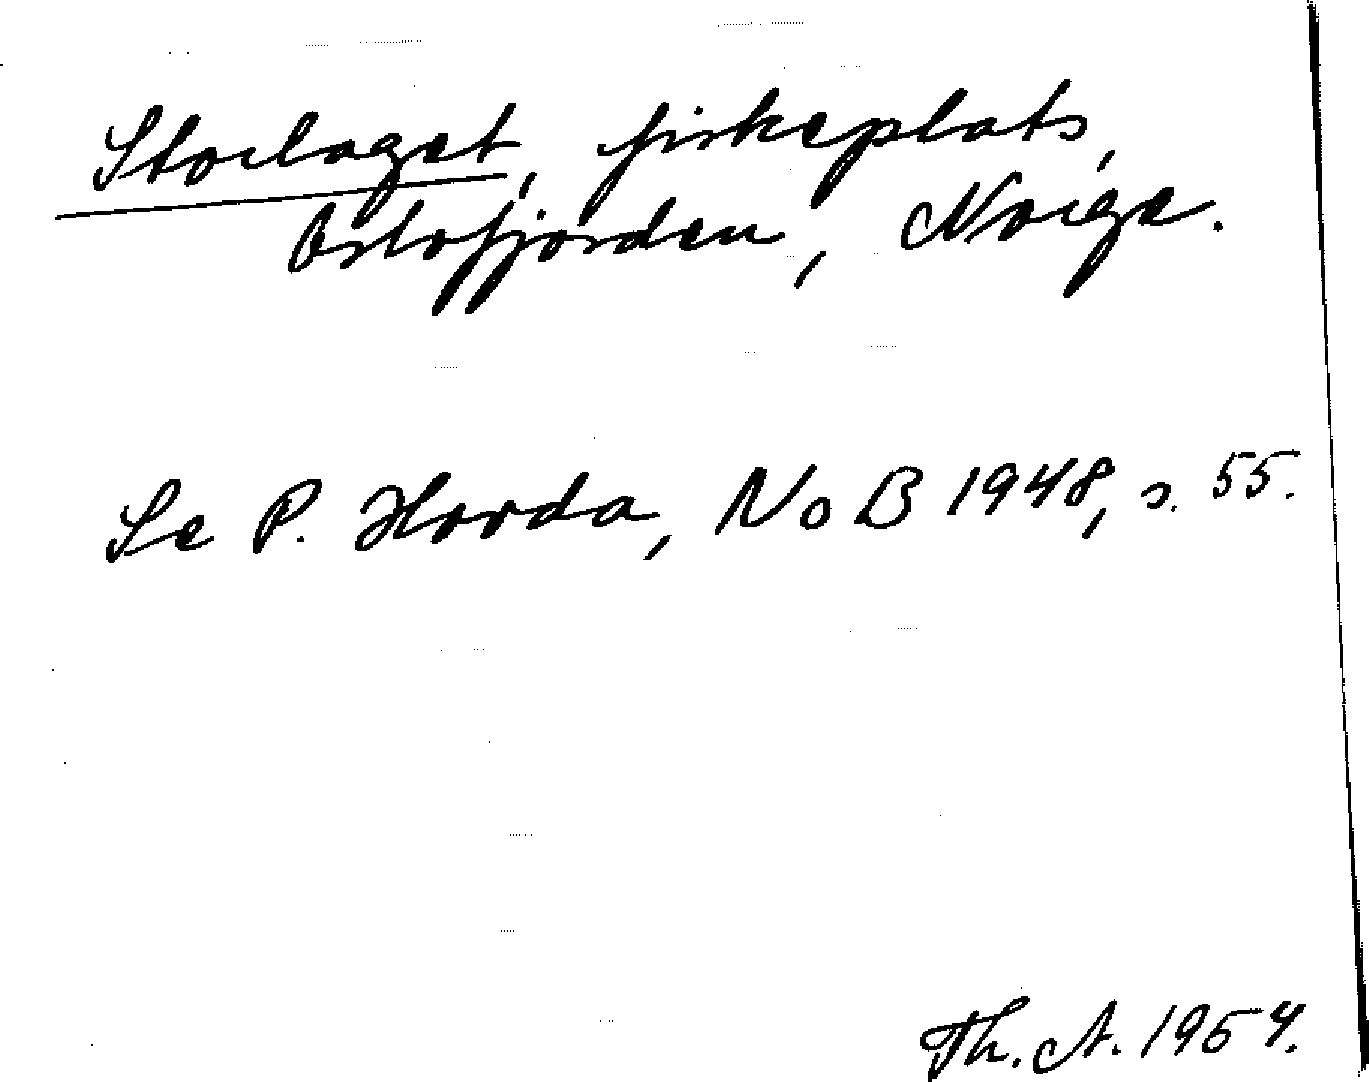 Storlaget, fiskeplats,
Oslofjorden, Norge.
Se P. Hovda, NoB 1948, s. 55.
Th. A. 1954.